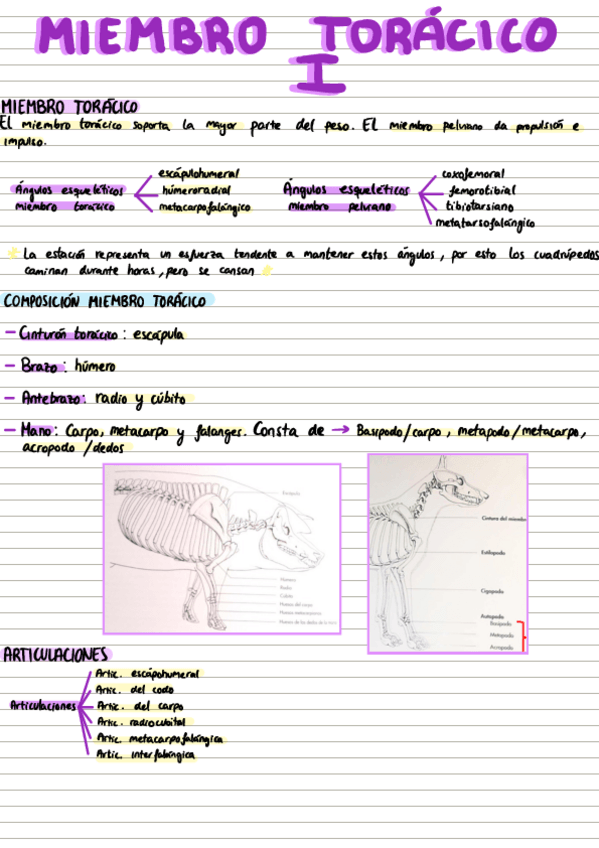 MIEMBRO TORÁCICO
I
MIEMBRO TORÁCICO
El miembro torácico soporta la mayor parte del peso. El miembro pelviano da propulsión e
impulso.
Ángulos esqueléticos
miembro torácico
escápulohumeral
húmeroradial
metacarpofalángico
Ángulos esqueléticos
miembro pelviano
coxofemoral
femorotibial
tibiotarsiano
metatarsofalángico
* La estación representa un esfuerzo tendente a mantener estos ángulos, por esto los cuadrúpedos
caminan durante horas, pero se cansan
COMPOSICIÓN MIEMBRO TORÁCICO
- Cinturón torácico: escápula
- Brazo: húmero
- Antebrazo: radio y cúbito
- Mano: Carpo, metacarpo y falanges. Consta de → Basipodo/carpo, metapodo/metacarpo,
acropodo/dedos
Escápula
Húmero
Radio
Cúbito
Huesos del carpo
Huesos metacarpianos
Huesos de los dedos de la mano
Cintura del miembro
Estilopodio
Cigopodio
Autopodio
Basipodio
Metapodio
Acropodio
ARTICULACIONES
Articulaciones
Artic. escápohumeral
Artic. del codo
Artic. del carpo
Artic. radiocubital
Artic. metacarpofalángica
Artic. interfalángica